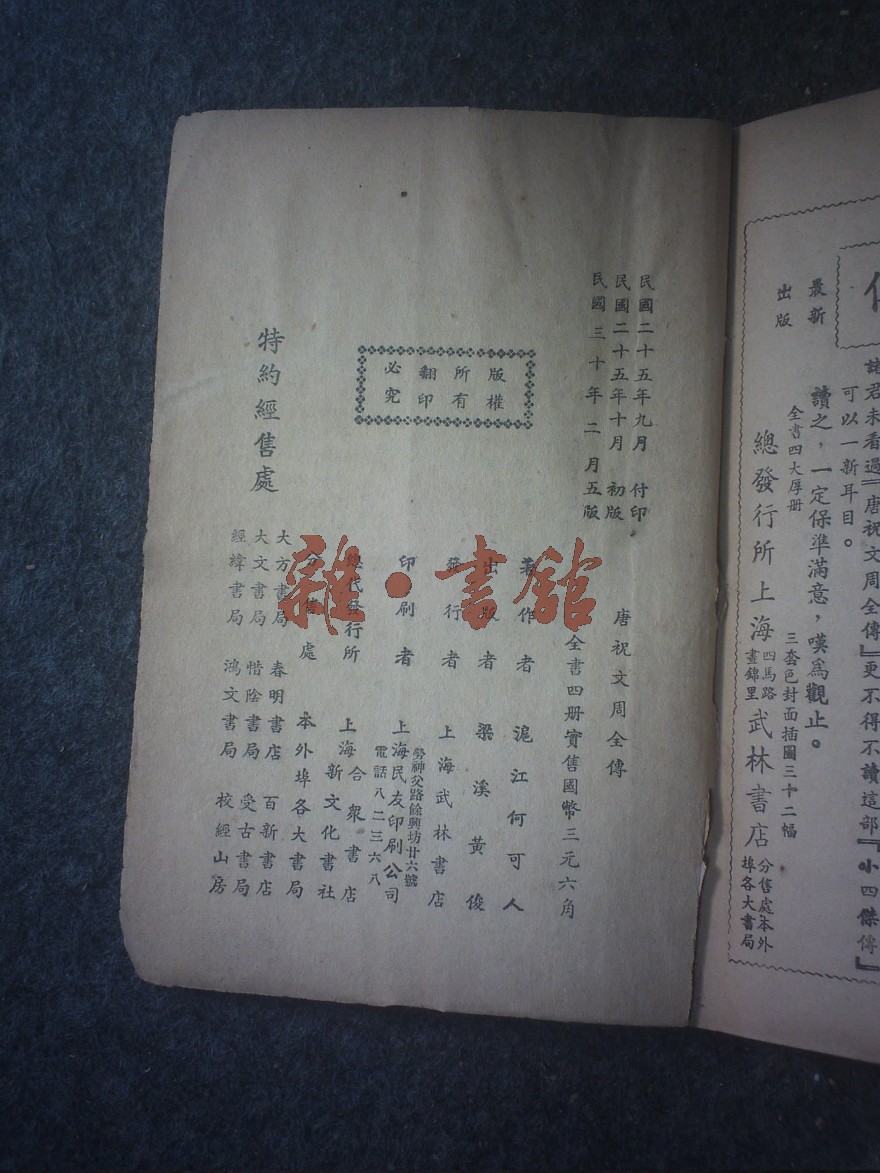 諸君未看過『唐祝文周全傳』更不得不讀這部『小四傑傳』
可以一新耳目。
最新
出版
讀之，一定保準滿意，嘆爲觀止。
全書四大厚册
三套色封面插圖三十二幅
總發行所上海
四馬路
晝錦里
武林書店
分售處本外
埠各大書局
民國二十五年九月 付印
民國二十五年十月 初版
民國三十年二月五版
唐祝文周全傳
全書四册實售國幣三元六角
版權
所有
翻印
必究
著作者 滬江何可人
出版者 梁溪黃俊
發行者 上海武林書店
印刷者 上海民友印刷公司
勞神父路餘興坊廿六號
電話八二三六八
總代發行所 上海合衆書店
上海新文化書社
分售處 本外埠各大書局
特約經售處
大方書局 春明書店 百新書店
大文書局 惜陰書局 受古書局
經緯書局 鴻文書局 校經山房
雜·書館